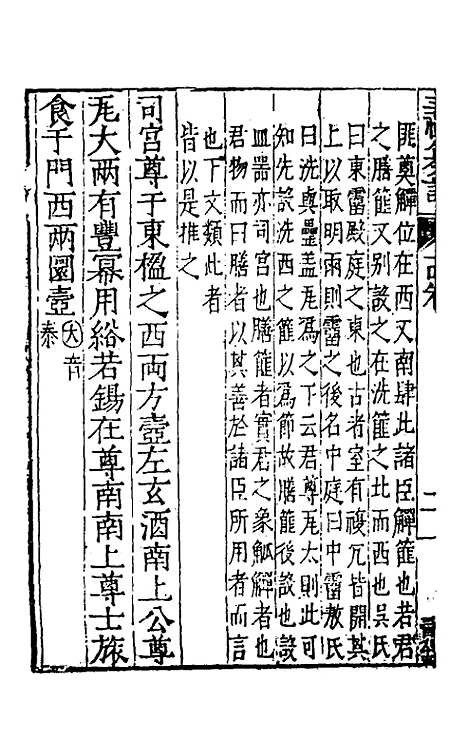 匪奠觶位在西又南肆此諸臣觶篚也若君
之膳篚又别設之在洗篚之北而西也吳氏
曰東霤殿庭之東也古者室有複穴皆開其
上以取明雨則霤之後名中庭曰中霤敖氏
曰洗與罍盖瓦為之下云君尊瓦大則此可
知先設洗西之篚以為節故膳篚後設也設
皿器亦司宮也膳篚者實君之象觚觶者也
君物而曰膳者以其善於諸臣所用者而言
也下文類此者
皆以是推之
司宮尊于東楹之西兩方壺左玄酒南上公尊
瓦大兩有豐冪用綌若錫在尊南南上尊士旅
食于門西兩圜壺
大音
泰